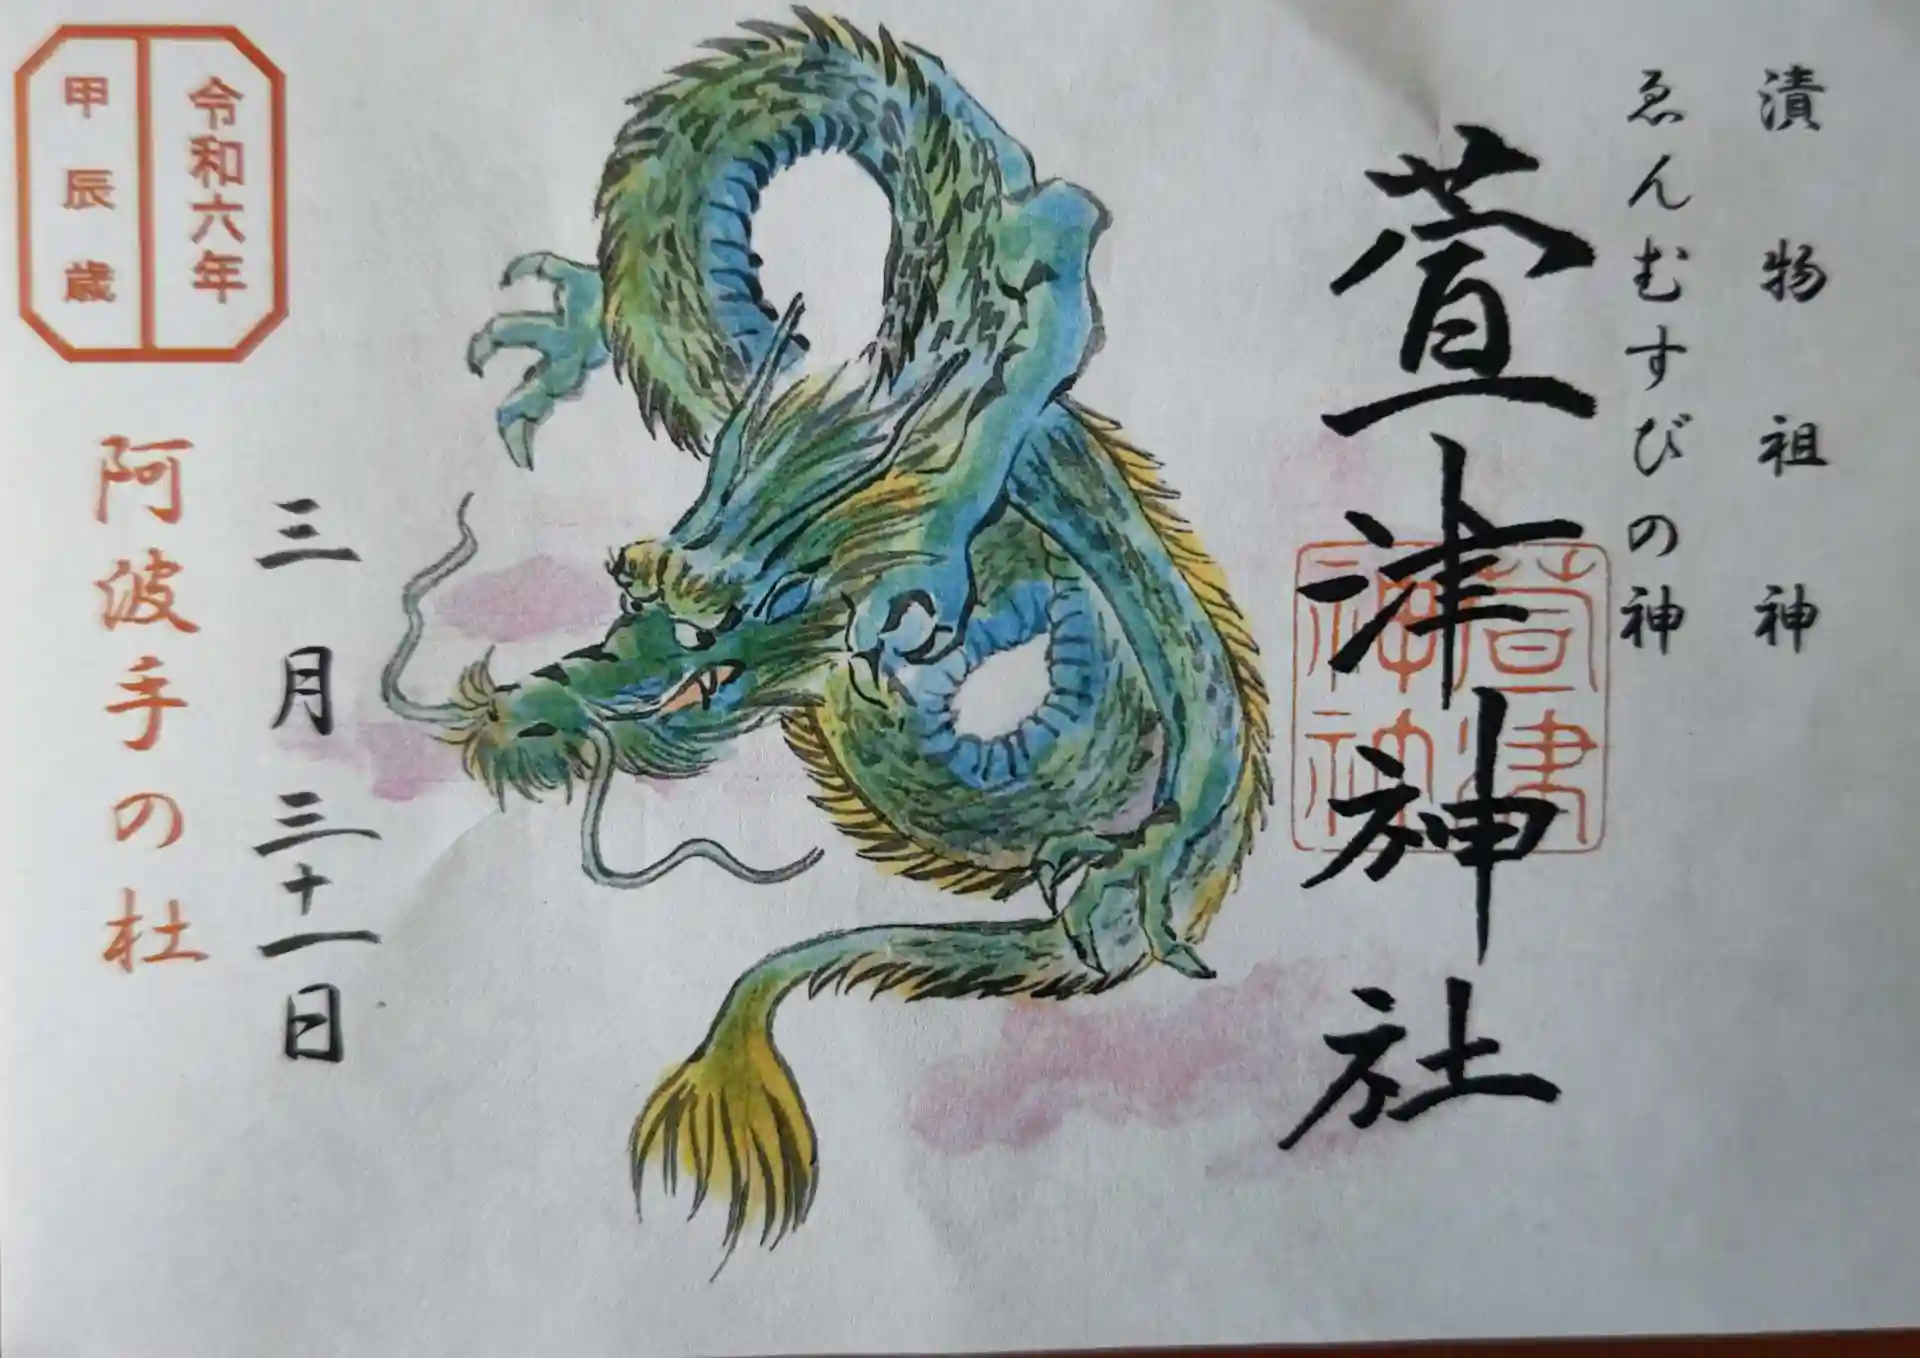 漬物祖神
ゑんむすびの神
萱津神社
萱津
神社
三月三十一日
令和六年
甲辰歳
阿波手の杜